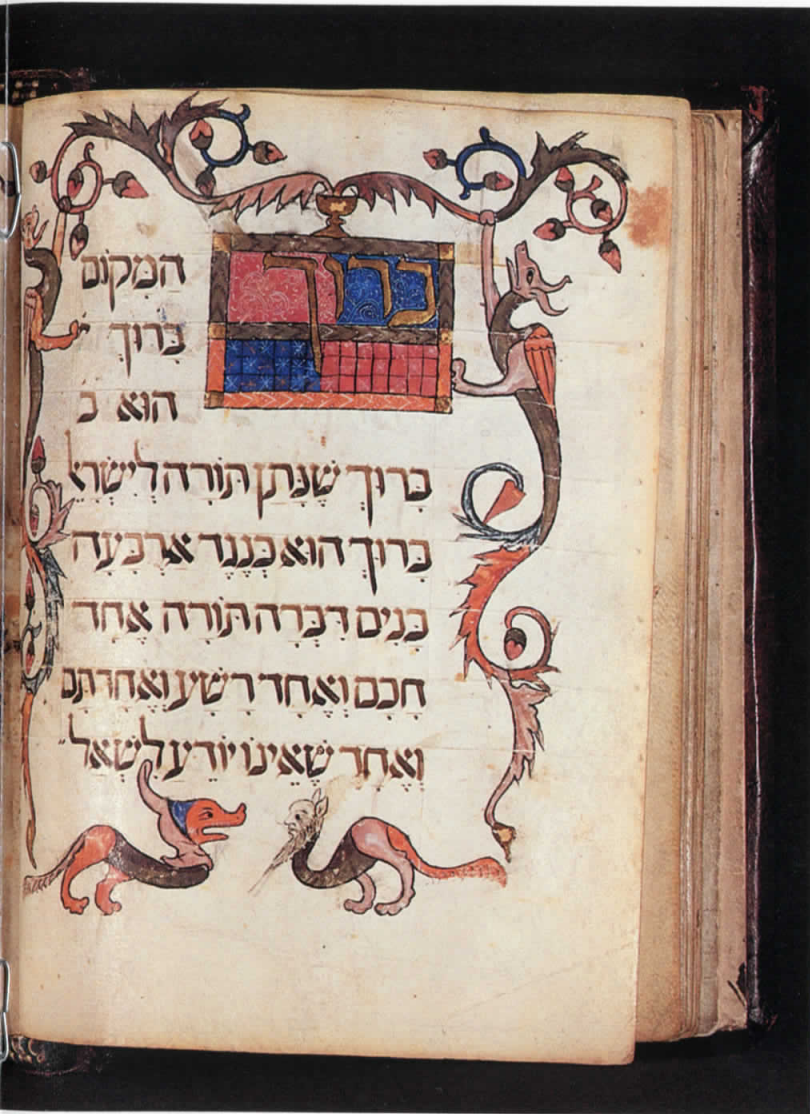 ברוך
המקום
ברוך י
הוא ב
ברוך שנתן תורה לישרא
ברוך הוא כנגד ארבעה
בנים דברה תורה אחד
חכם ואחד רשע ואחד תם
ואחד שאינו יודע לשאל